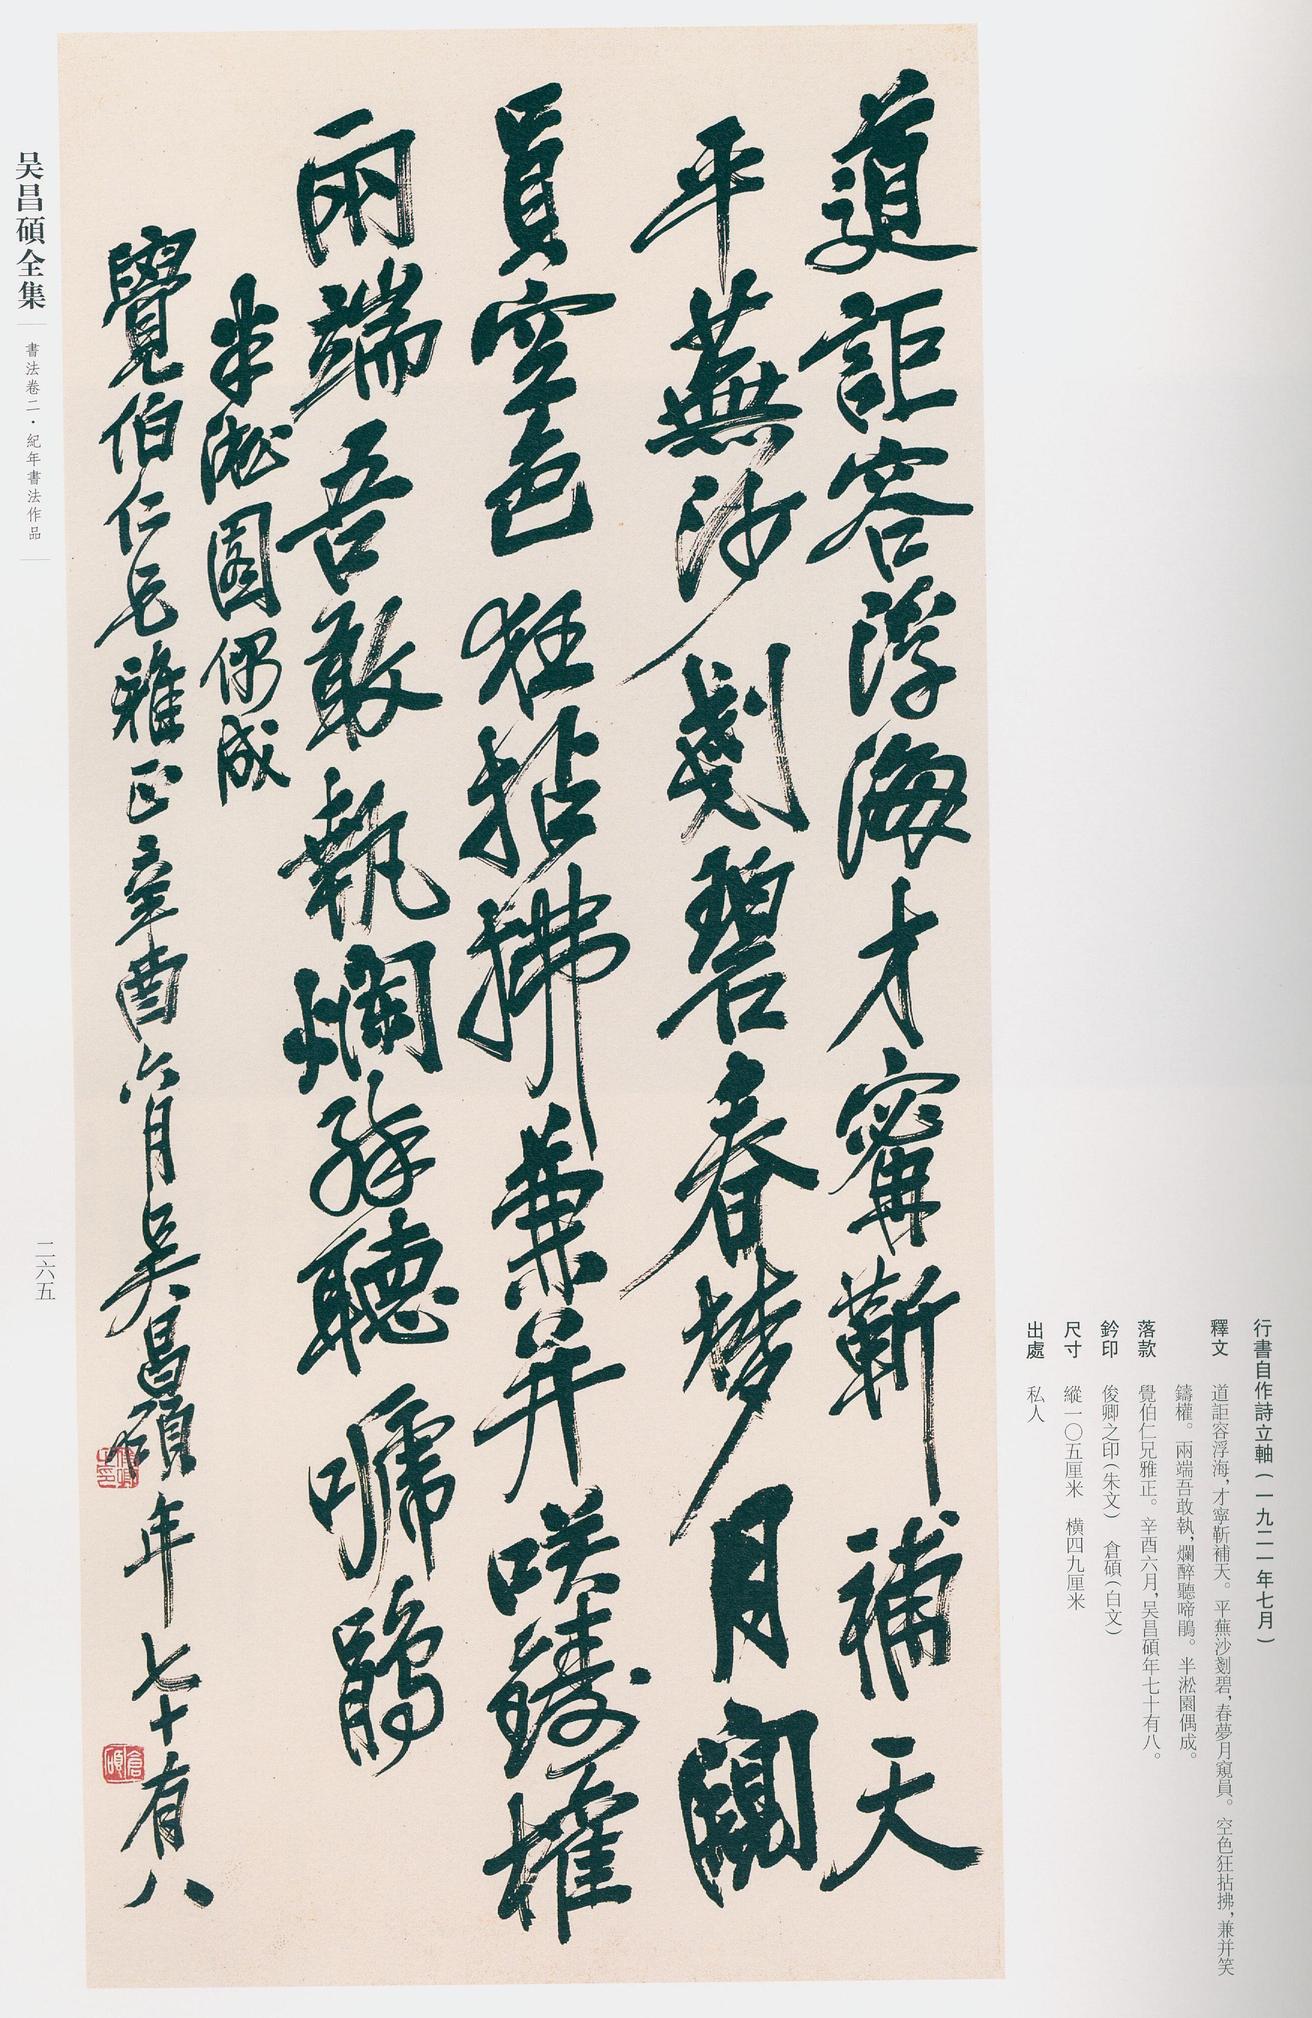 行書自作詩立軸（一九二一年七月）
釋文　道詎容浮海，才寧靳補天。平蕪沙剗碧，春夢月窺員。空色狂拈拂，兼并笑
鑄權。兩端吾敢執，爛醉聽啼鵑。半淞園偶成。
落款　覺伯仁兄雅正。辛酉六月，吴昌碩年七十有八。
鈐印　俊卿之印（朱文）　倉碩（白文）
尺寸　縱一〇五厘米　橫四九厘米
出處　私人
道詎容浮海才甯靳補天
平蕪沙剗碧春夢月闚
員空色狂拈拂兼并咲鑄權
兩端吾敢執爛醉聽嗁鵑
半淞園偶成
覺伯仁兄雅正辛酉六月吴昌碩年七十有八
俊卿之印
倉碩
吴昌碩全集
書法卷二·紀年書法作品
二六五